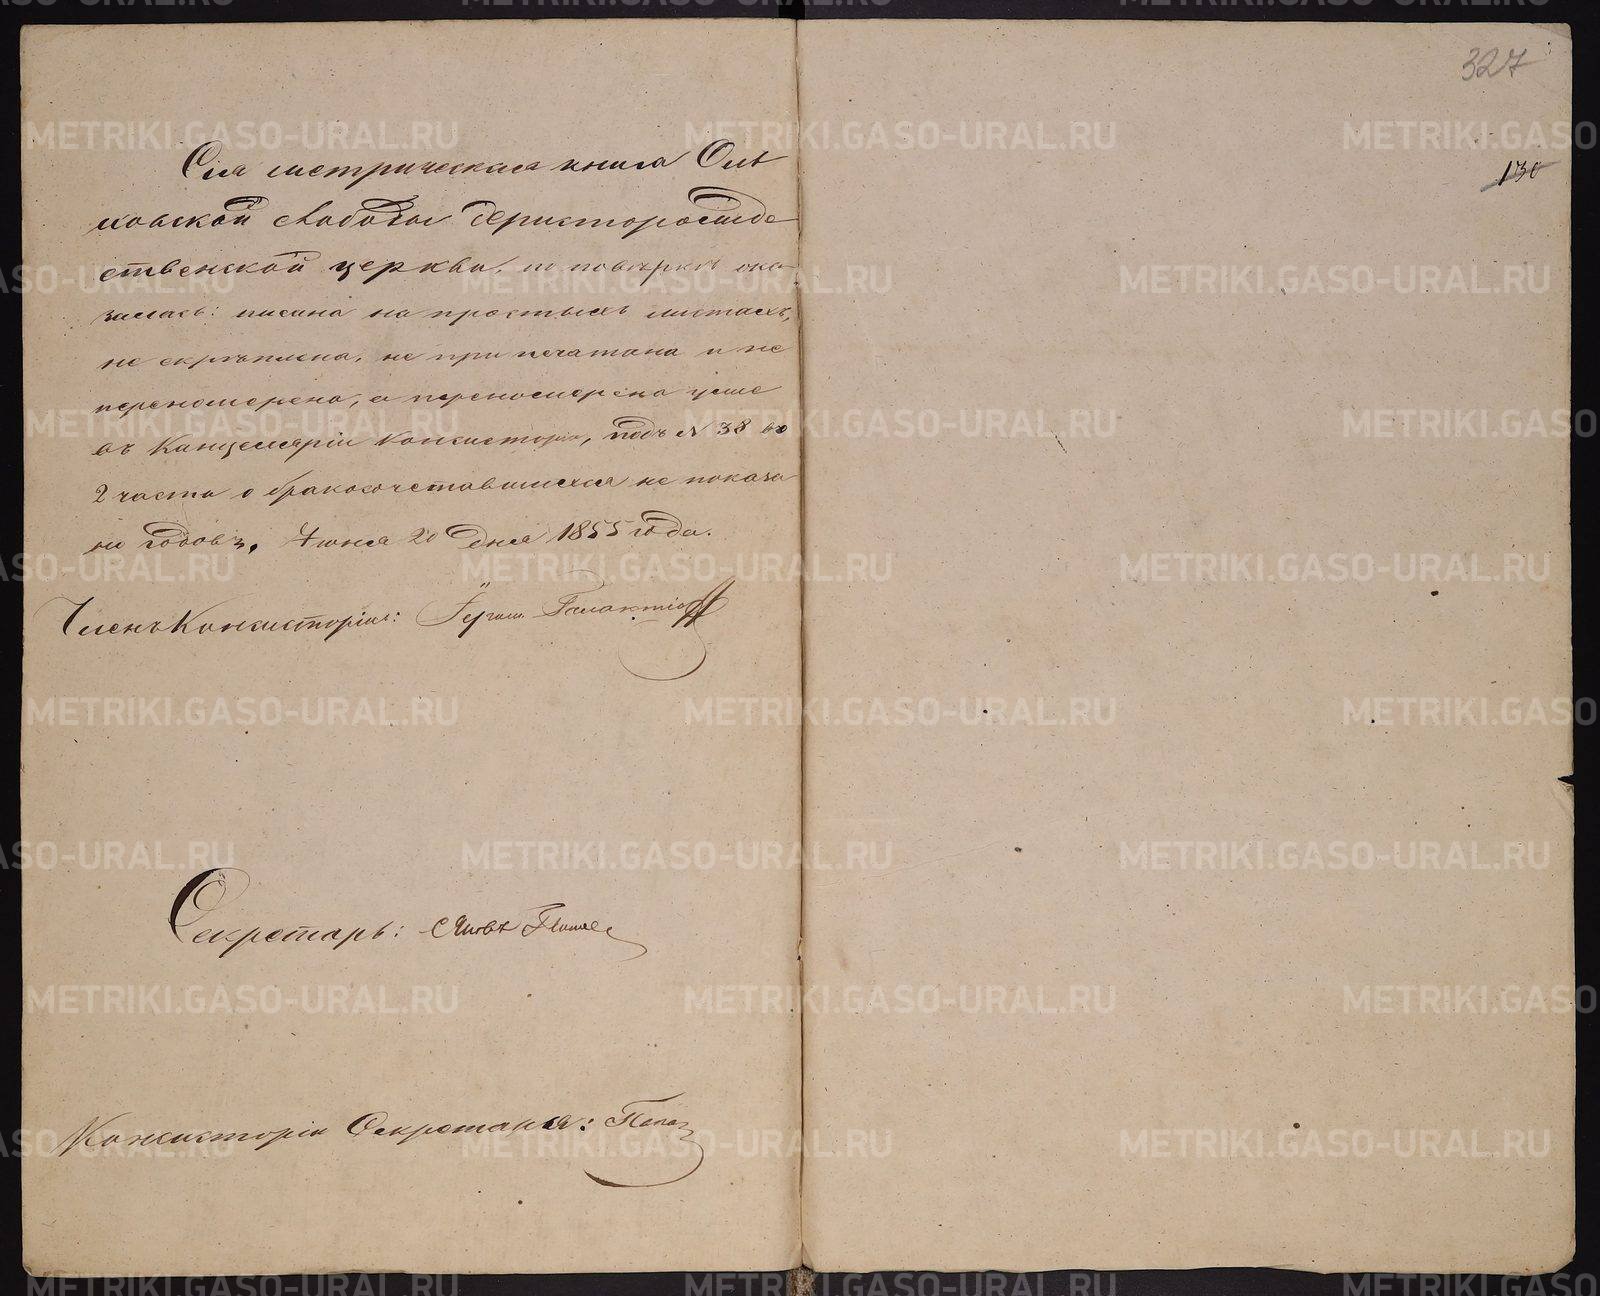 327
130
Сія метрическая книга Оль
ховской слободы Христорожде
ственской церкви, по поверкѣ ока
залась: писана на простыхъ листахъ,
не скрѣплена, не припечатана и не
перенумерена, а перенумерена уже
въ Канцеляріи Консисторіи, подъ № 38 во
2 части о бракосочетавшихся не показа
но годовъ. Іюня 20 дня 1855 года.
Членъ Консисторіи:
Секретарь:
Консисторіи Секретарь: Попов
METRIKI.GASO-URAL.RU